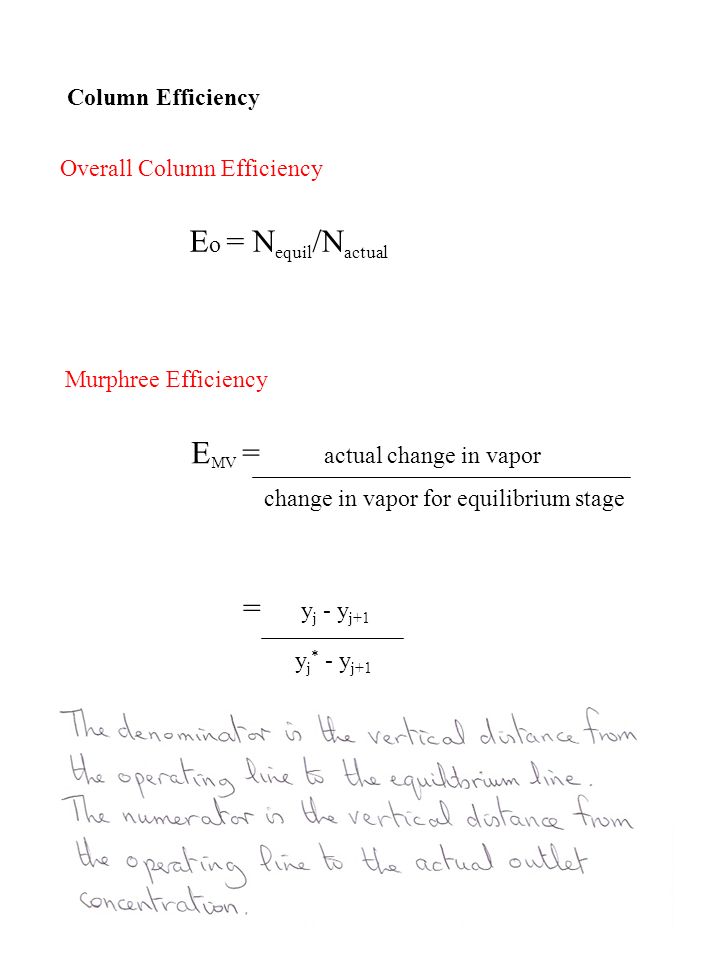 Column Efficiency
Overall Column Efficiency
Eo = Nequil/Nactual
Murphree Efficiency
EMV = actual change in vapor
change in vapor for equilibrium stage
= yj - yj+1
yj* - yj+1
The denominator is the vertical distance from
the operating line to the equilibrium line.
The numerator is the vertical distance from
the operating line to the actual outlet
concentration.